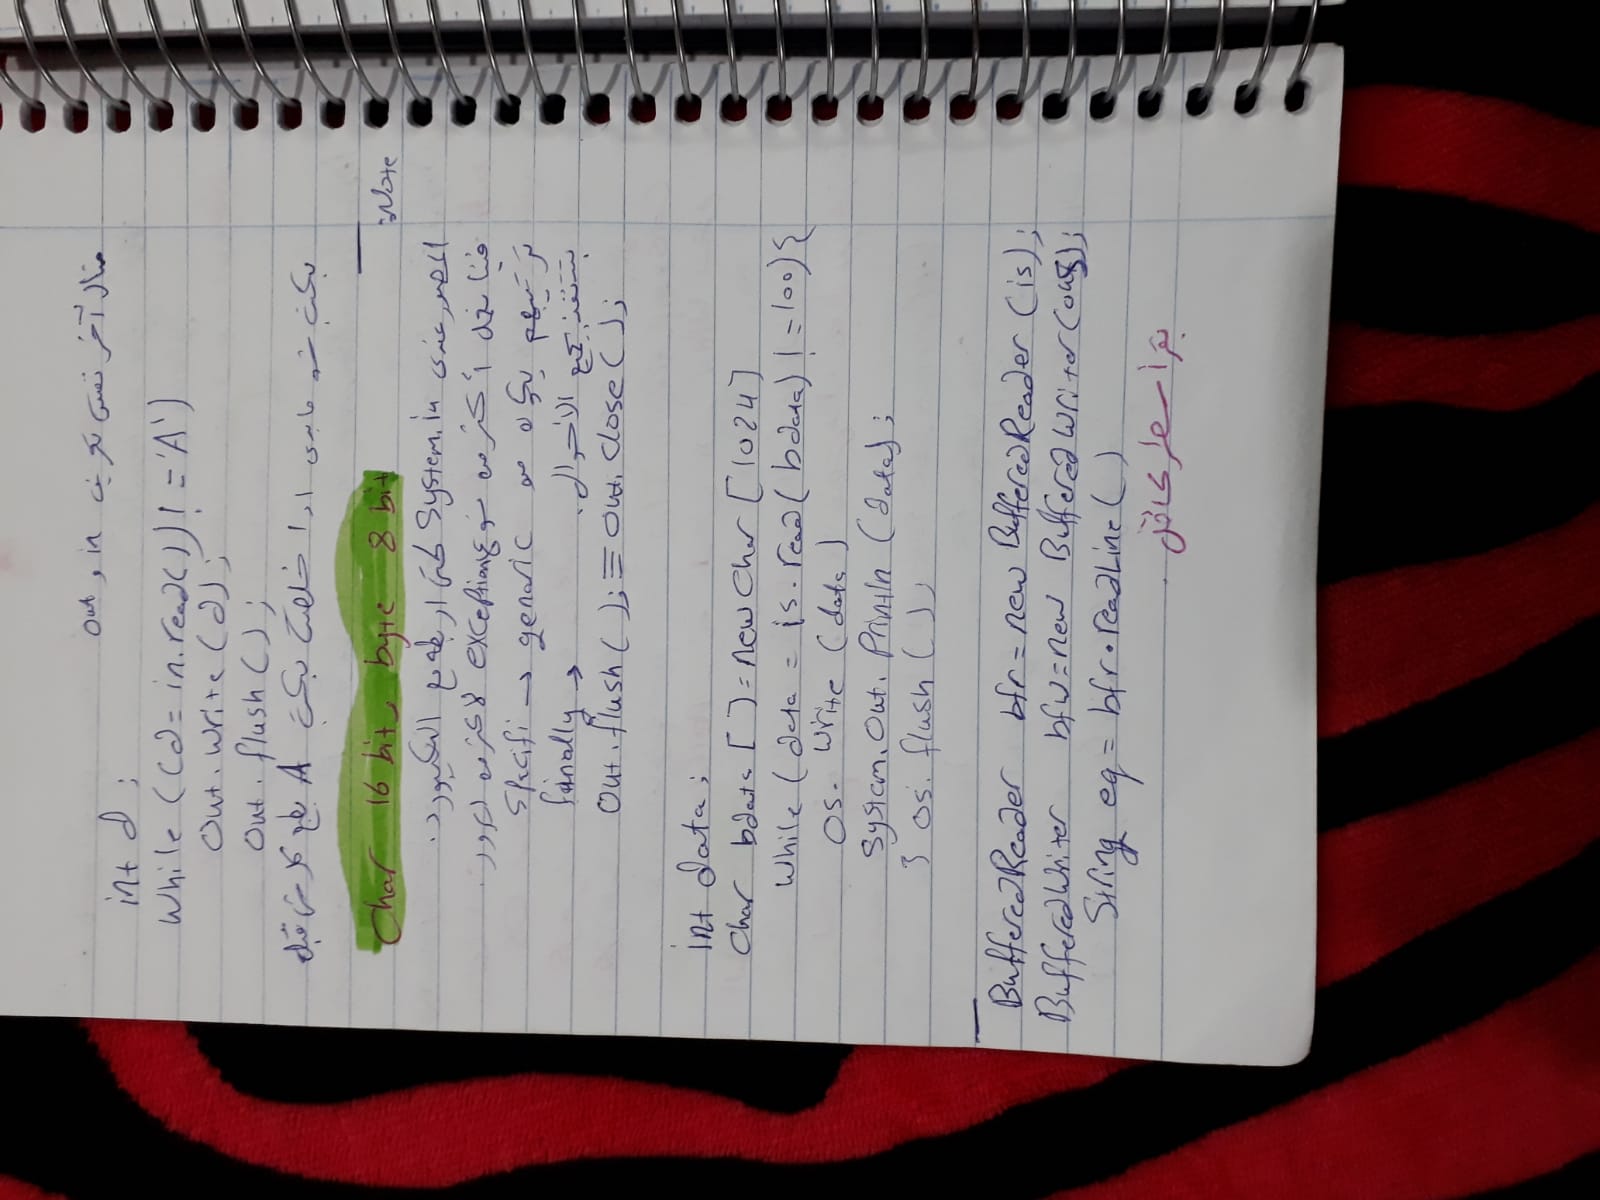 مثال آخر نفس تعريف in و out
int d;
While ((d = in.read()) != 'A')
Out. write (d);
Out. flush ();
بكتب شو مابدي اذا خلصت بكتب A بطبع كل شي قبل
Note:
Char 16 bit, byte 8 bit
المصدر عندي System.in لحتى اربطه مع الكيبورد.
فينا نعمل أكثر من نوع exception لاكثر من ايرور.
ترتيبهم يكون من generic → Specifi
finally → بتتنفذ بجميع الاحوال.
Out. flush (); ≡ out. Close ();
int data;
Char bdata [ ] = new Char [1024]
While (data = is. read (bdata) != 100) {
OS. Write (data)
System. Out. Println (data);
} OS. flush ();
BufferedReader bfr = new BufferedReader (is);
BufferedWriter bfw = new BufferedWriter (ous);
String eq = bfr.readLine ()
بقرأ سطر كامل.